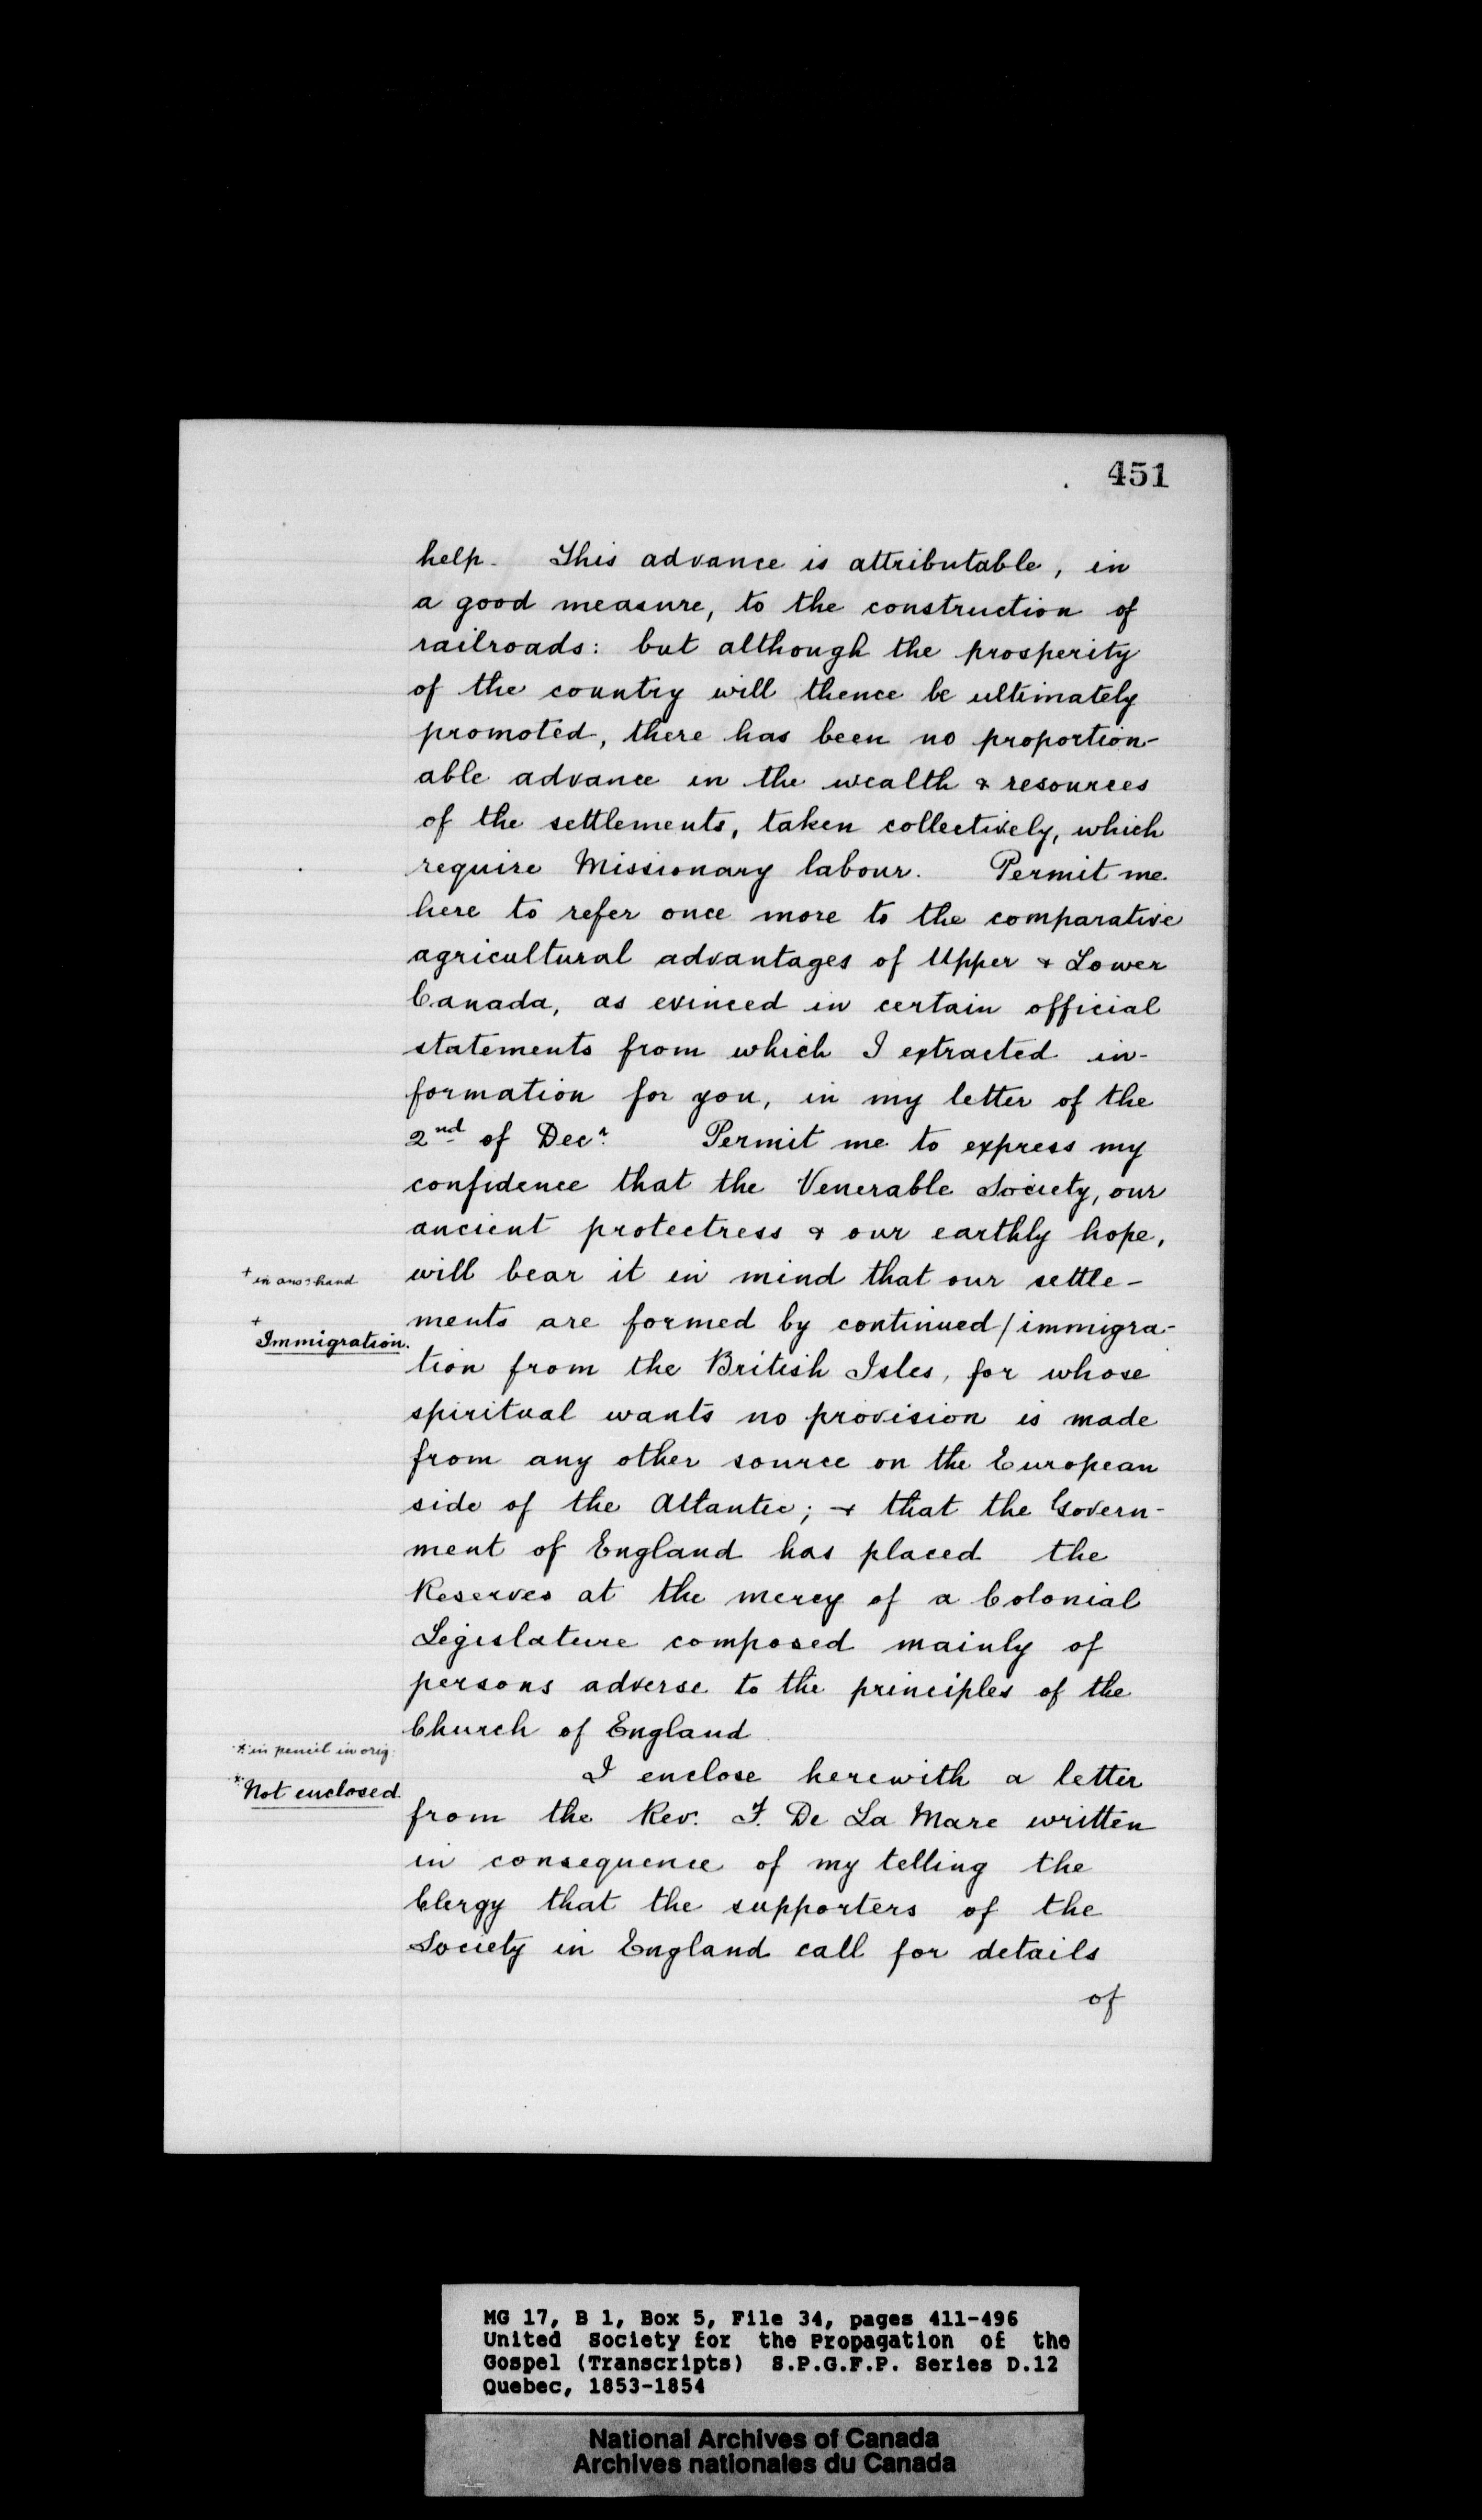 451
help. This advance is attributable, in
a good measure, to the construction of
railroads: but although the prosperity
of the country will thence be ultimately
promoted, there has been no proportion-
able advance in the wealth & resources
of the settlements, taken collectively, which
require Missionary labour. Permit me
here to refer once more to the comparative
agricultural advantages of Upper & Lower
Canada, as evinced in certain official
statements from which I extracted in-
formation for you, in my letter of the
2nd of Decr. Permit me to express my
confidence that the Venerable Society, our
ancient protectress & our earthly hope,
+ in ano: hand
will bear it in mind that our settle-
ments are formed by continued/immigra-
+ Immigration.
tion from the British Isles, for whose
spiritual wants no provision is made
from any other source on the European
side of the Atlantic; & that the Govern-
ment of England has placed the
Reserves at the mercy of a Colonial
Legislature composed mainly of
persons adverse to the principles of the
Church of England
* in pencil in orig:
I enclose herewith a letter
* Not enclosed.
from the Rev. F. De La Mare written
in consequence of my telling the
Clergy that the supporters of the
Society in England call for details
of
MG 17, B 1, Box 5, File 34, pages 411-496
United Society for the Propagation of the
Gospel (Transcripts) S.P.G.F.P. Series D.12
Quebec, 1853-1854
National Archives of Canada
Archives nationales du Canada